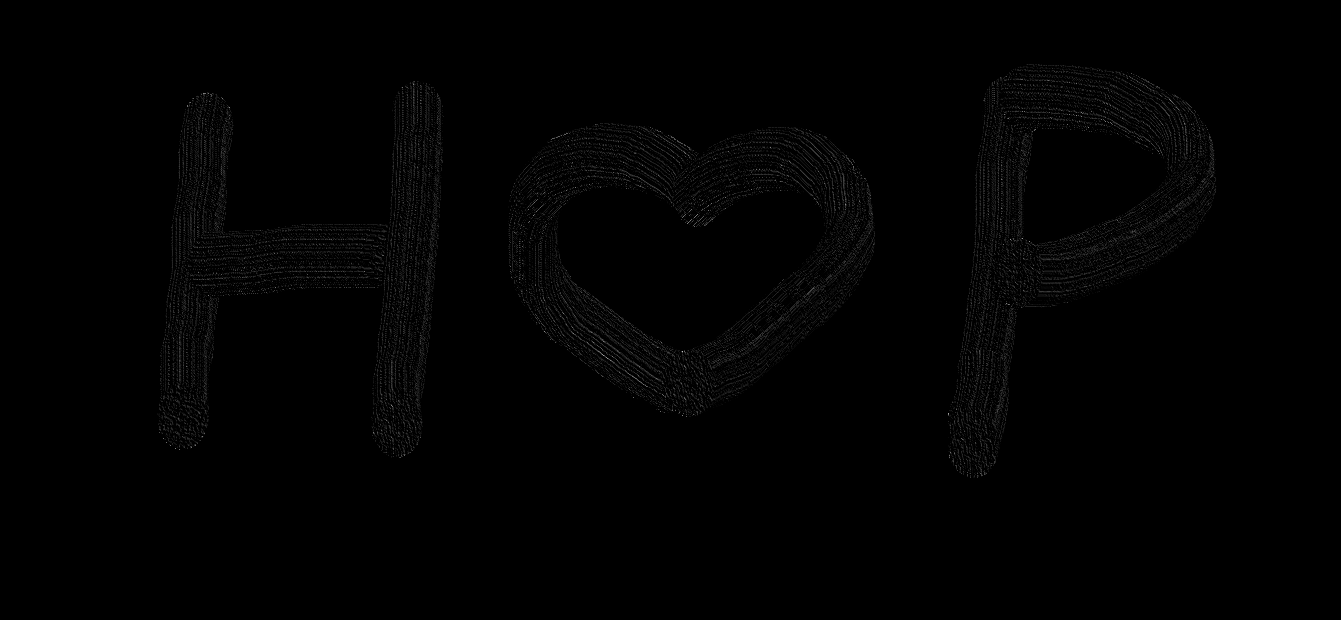 H♡P